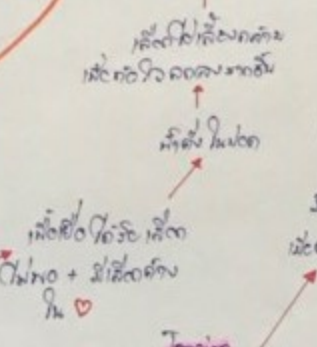 เลือดไปเลี้ยงกล้าม
เนื้อหัวใจลดลงมากขึ้น
น้ำคั่งในปอด
เนื้อเยื่อได้รับเลือด
ไม่พอ + มีเลือดค้าง
ใน ♡
เนื่อ